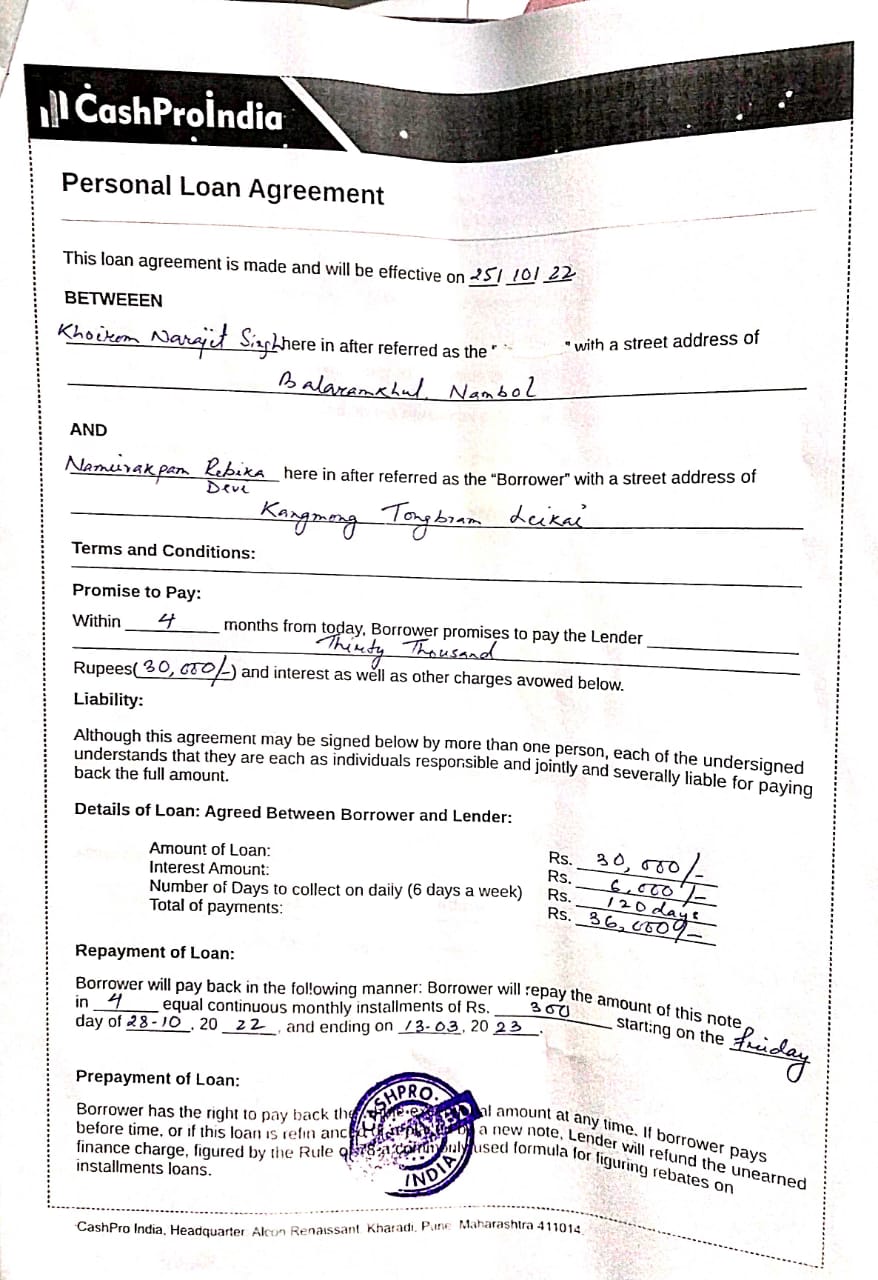 CashProIndia
Personal Loan Agreement
This loan agreement is made and will be effective on 25/ 10/ 22
BETWEEEN
Khoirom Narajit Singh here in after referred as the " " with a street address of
Balaramkhul, Nambol
AND
Nameirakpam Rebika Devi here in after referred as the “Borrower” with a street address of
Kangmong Tongbram Leikai
Terms and Conditions:
Promise to Pay:
Within 4 months from today, Borrower promises to pay the Lender
Thirty Thousand
Rupees( 30,000/-) and interest as well as other charges avowed below.
Liability:
Although this agreement may be signed below by more than one person, each of the undersigned
understands that they are each as individuals responsible and jointly and severally liable for paying
back the full amount.
Details of Loan: Agreed Between Borrower and Lender:
Amount of Loan: Rs. 30,000/-
Interest Amount: Rs. 6,000/-
Number of Days to collect on daily (6 days a week) Rs. 120 days
Total of payments: Rs. 36,000/-
Repayment of Loan:
Borrower will pay back in the following manner: Borrower will repay the amount of this note
in 4 equal continuous monthly installments of Rs. 300 starting on the Friday
day of 28-10, 20 22, and ending on 13-03, 20 23.
Prepayment of Loan:
Borrower has the right to pay back the amount at any time. If borrower pays
before time, or if this loan is refinanced a new note, Lender will refund the unearned
finance charge, figured by the Rule of 78-a commonly used formula for figuring rebates on
installments loans.
CASHPRO.
INDIA
CashPro India, Headquarter Alcon Renaissant Kharadi, Pune Maharashtra 411014